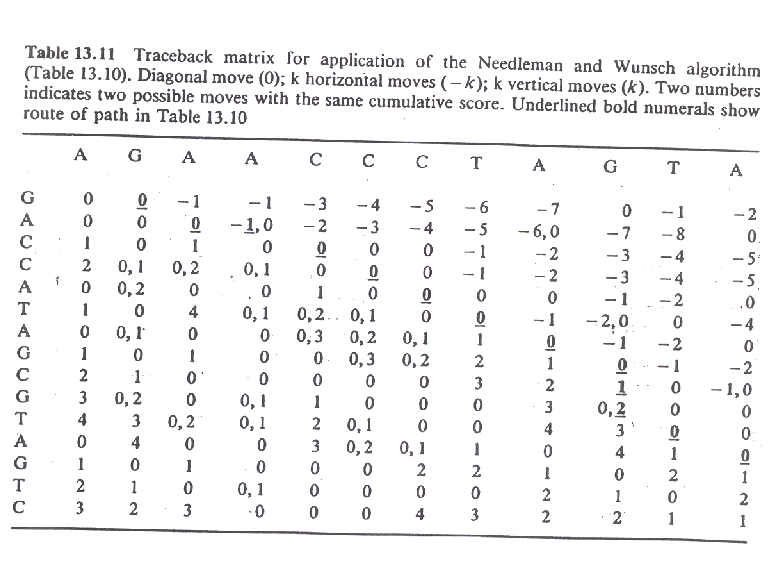 Table 13.11 Traceback matrix for application of the Needleman and Wunsch algorithm
(Table 13.10). Diagonal move (0); k horizontal moves (−k); k vertical moves (k). Two numbers
indicates two possible moves with the same cumulative score. Underlined bold numerals show
route of path in Table 13.10
A G A A C C C T A G T A
G 0 0 −1 −1 −3 −4 −5 −6 −7 0 −1 −2
A 0 0 0 −1,0 −2 −3 −4 −5 −6,0 −7 −8 0
C 1 0 1 0 0 0 0 −1 −2 −3 −4 −5
C 2 0,1 0,2 0,1 0 0 0 −1 −2 −3 −4 −5
A 0 0,2 0 0 1 0 0 0 0 −1 −2 0
T 1 0 4 0,1 0,2 0,1 0 0 −1 −2,0 0 −4
A 0 0,1 0 0 0,3 0,2 0,1 1 0 −1 −2 0
G 1 0 1 0 0 0,3 0,2 2 1 0 −1 −2
C 2 1 0 0 0 0 0 3 2 1 0 −1,0
G 3 0,2 0 0,1 1 0 0 0 3 0,2 0 0
T 4 3 0,2 0,1 2 0,1 0 0 4 3 0 0
A 0 4 0 0 3 0,2 0,1 1 0 4 1 0
G 1 0 1 0 0 0 2 2 1 0 2 1
T 2 1 0 0,1 0 0 0 0 2 1 0 2
C 3 2 3 0 0 0 4 3 2 2 1 1